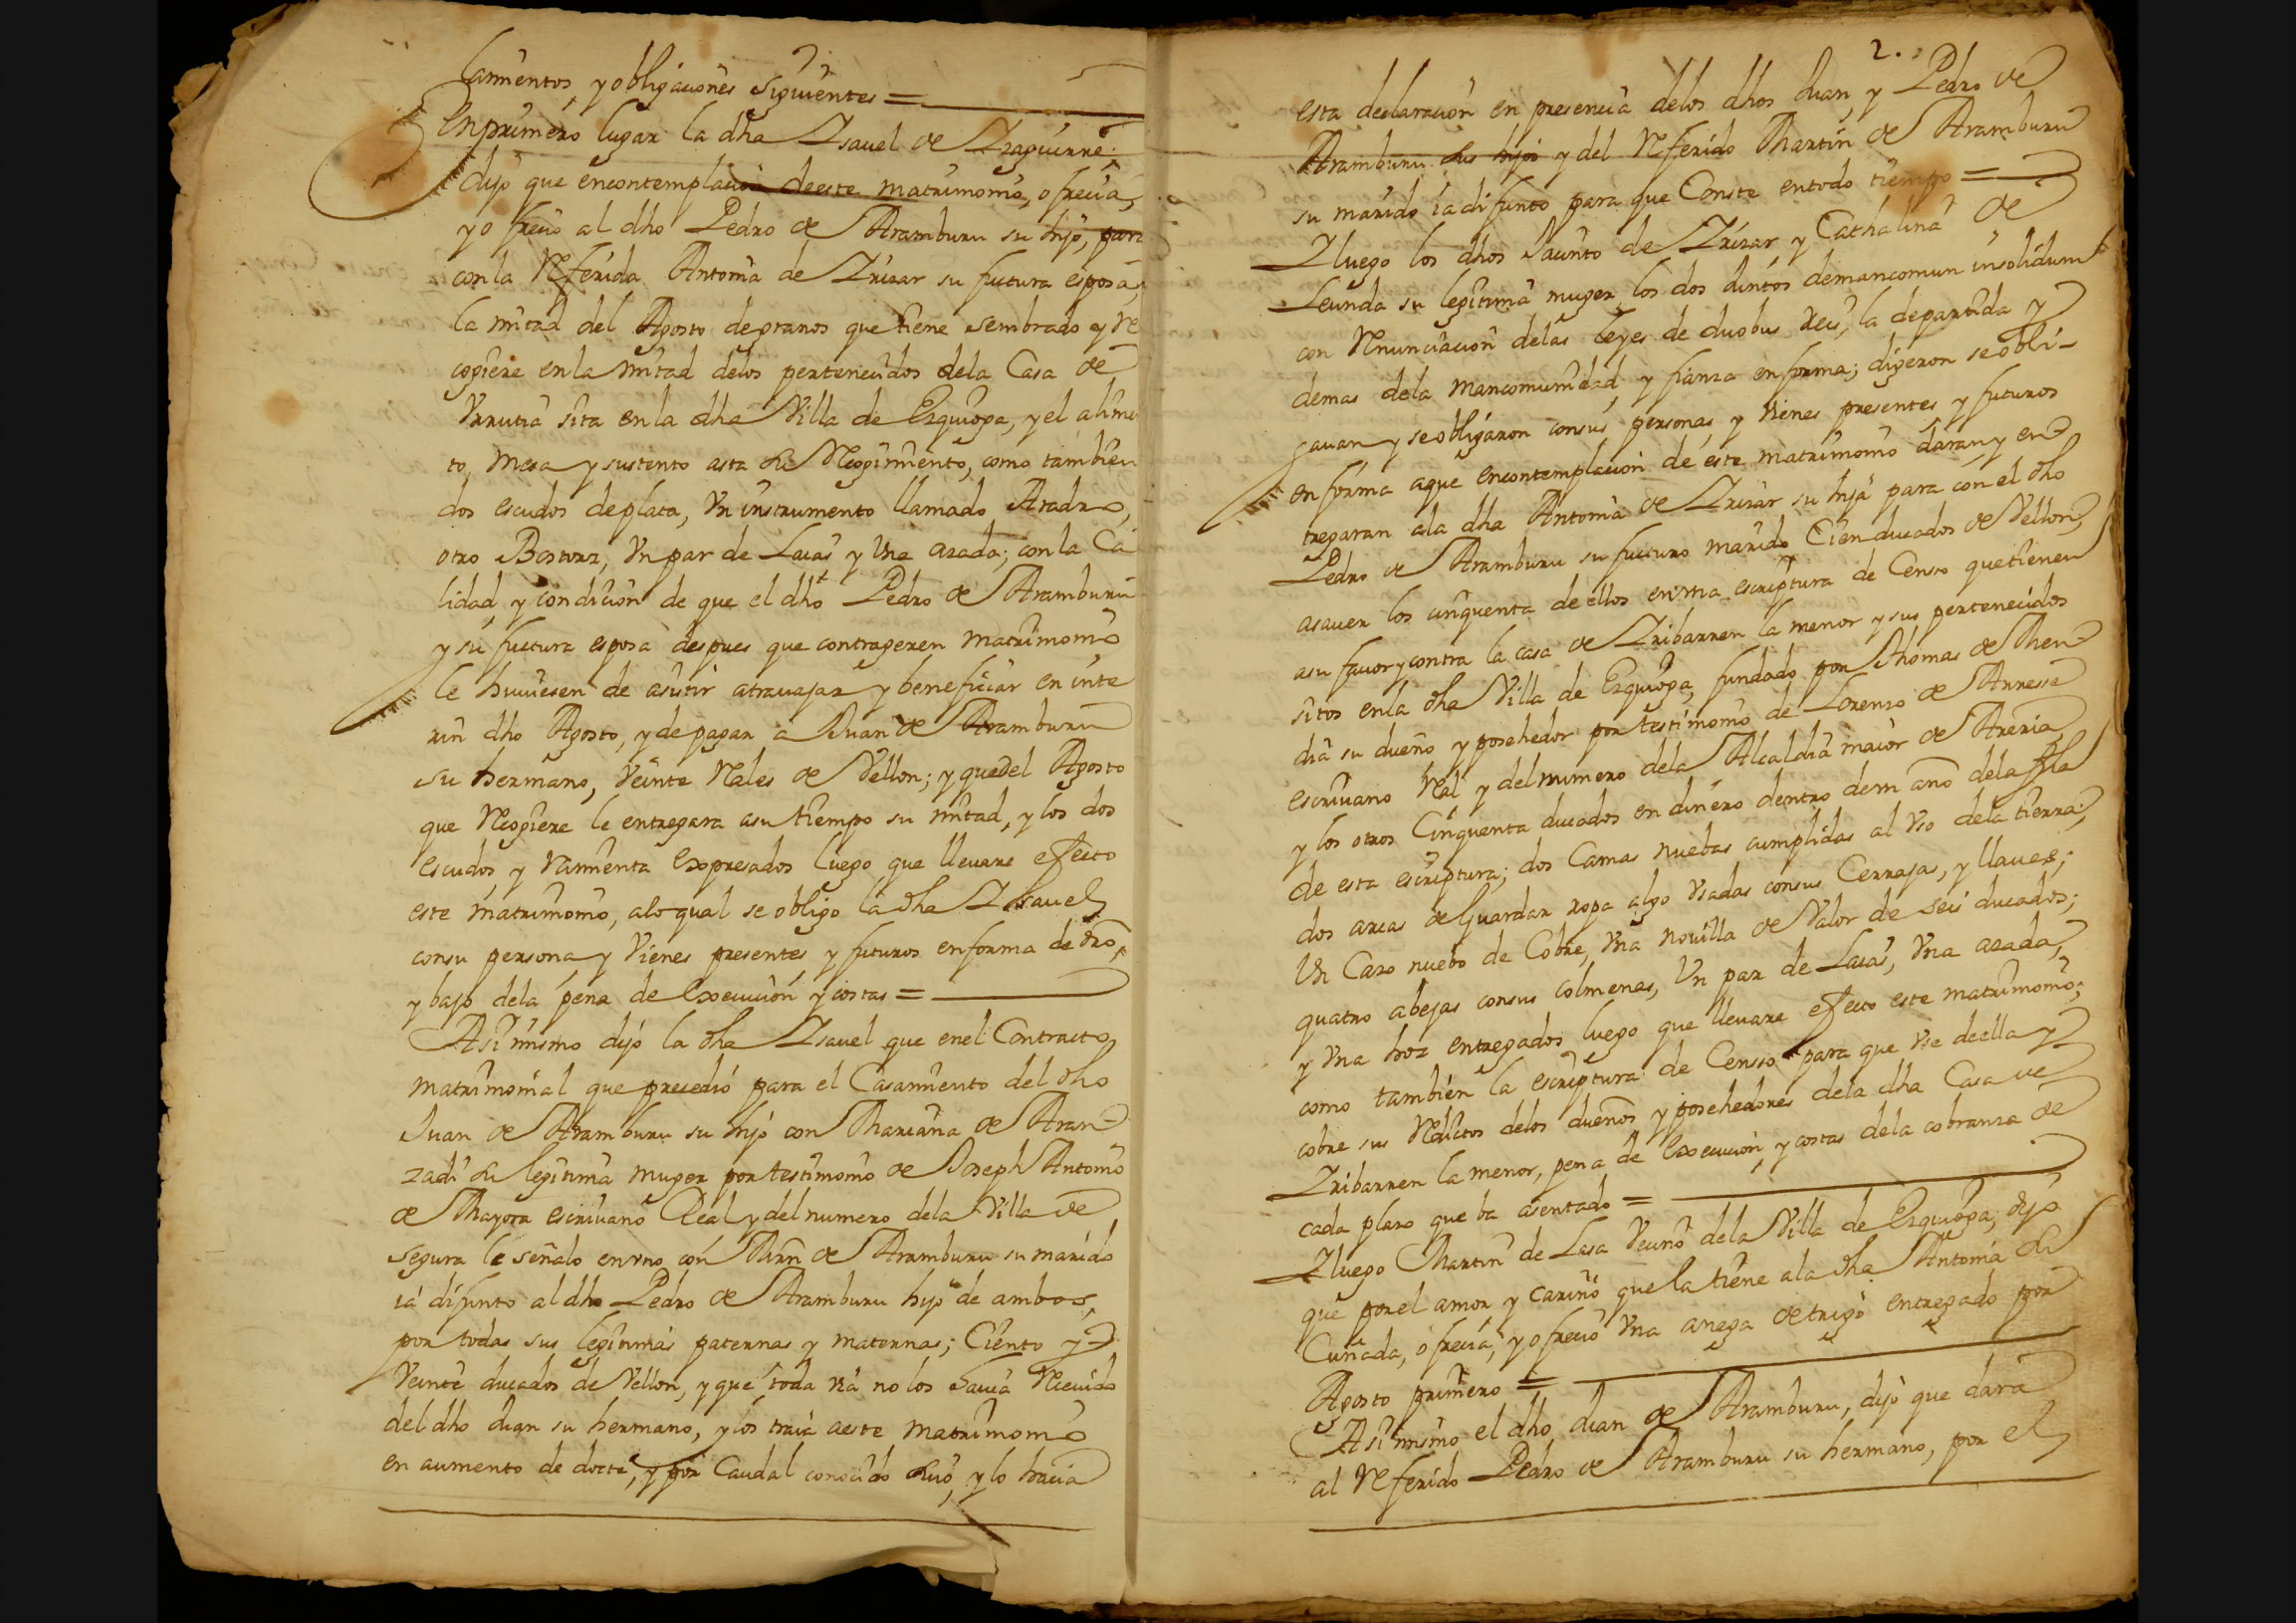 lamientos, y obligaciones siguientes =
En primero lugar la dha Isauel de Izaguirre
dijo que encontemplacion de este matrimonio, ofrecia,
y ofrecio al dho Pedro de Aramburu su hijo, para
con la Referida Antonia de Irizar su futura esposa,
la mitad del Agosto de granos que tiene sembrado y Re
cogiere en la mitad delos pertenecidos dela Casa de
Vrrutia sita en la dha Villa de Ezquioga, y el alimen
to, mesa y sustento asta su Recogimiento, como tambien
dos escudos de plata, Vn instrumento llamado Aradro,
otro Bostorz, Vn par de Laias y Vna azada; con la Ca
lidad, y condicion de que el dho Pedro de Aramburu
y su futura esposa despues que contrageren matrimonio
le huuiesen de asistir atrauajar y beneficiar en inte
rin dho Agosto, y de pagar a Juan de Aramburu
su hermano, Veinte Rales de Vellon; y que del Agosto
que Recogiere le entregara asu tiempo su mitad, y los dos
escudos, y Ramienta Expresados luego que lleuare efecto
este matrimonio, alo qual se obligo la dha Isauel
consu persona y Vienes presentes y futuros en forma de dro,
y bajo dela pena de Execucion y costas =
Asi mismo dijo la dha Isauel que enel Contracto
matrimonial que precedió para el Casamiento del dho
Juan de Aramburu su hijo con Mariana de Aran
zadi su legitima muger por testimonio de Joseph Antonio
de Mayora escriuano Real y del numero dela Villa de
Segura le señalo en vno con Mrn de Aramburu su marido
ia difunto al dho Pedro de Aramburu hijo de ambos,
por todas sus legitimas paternas y maternas; Ciento y
Veinte ducados de Vellon, y que toda via no los hauia Reciuido
del dho Juan su hermano, y los traia aeste matrimonio
en aumento de docte, y por Caudal conocido suio, y lo hacia
2.
esta declaracion en presencia delos dhos Juan, y Pedro de
Aramburu sus hijos y del Referido Martin de Aramburu
su marido ia difunto para que Conste entodo tiempo =
I luego los dhos Jacinto de Irizar y Cathalina de
Leunda su legitima muger los dos juntos demancomun insolidum
con Renunciacion delas leyes de duobus Reis, la departida y
demas dela mancomunidad, y fianza en forma; digeron se obli-
gauan y se obligaron consus personas, y Vienes presentes y futuros
en forma aque encontemplacion de este matrimonio daran y en
tregaran ala dha Antonia de Irizar su hija para con el dho
Pedro de Aramburu su futuro marido Cien ducados de Vellon,
asauer los cinquenta de ellos en vna escriptura de Censo que tienen
asu fauor y contra la casa de Iribarren la menor y sus pertenecidos
sitos en la dha Villa de Ezquioga, fundado por Thomas de Men
dia su dueño y posehedor por testimonio de Lorenzo de Arrese
escriuano Ral y del numero dela Alcaldia maior de Areria,
y los otros Cinquenta ducados en dinero dentro de vn año dela fha
de esta escriptura; dos Camas nuebas cumplidas al Vso dela tierra;
dos arcas de Guardar ropa algo Vsadas consus Cerrajas, y llaues;
Vn Cazo nuebo de Cobre, Vna nouilla de Valor de seis ducados;
quatro abejas consus colmenas, Vn par de Laias, Vna azada,
y Vna hoz entregados luego que lleuare efecto este matrimonio;
como tambien la escriptura de Censso para que Vse de ella y
cobre sus Reditos delos dueños y posehedores dela dha Casa de
Iribarren la menor, pena de Execucion, y costas dela cobranza de
cada plazo que ba asentado =
I luego Martin de Lasa Vecino dela Villa de Ezquioga, dijo
que por el amor, y cariño que la tiene ala dha Antonia su
Cuñada, ofrecia, y ofrecio Vna anega de trigo entregado por
Agosto primero =
Asi mismo el dho Juan de Aramburu, dijo que dara
al Referido Pedro de Aramburu su hermano, por el